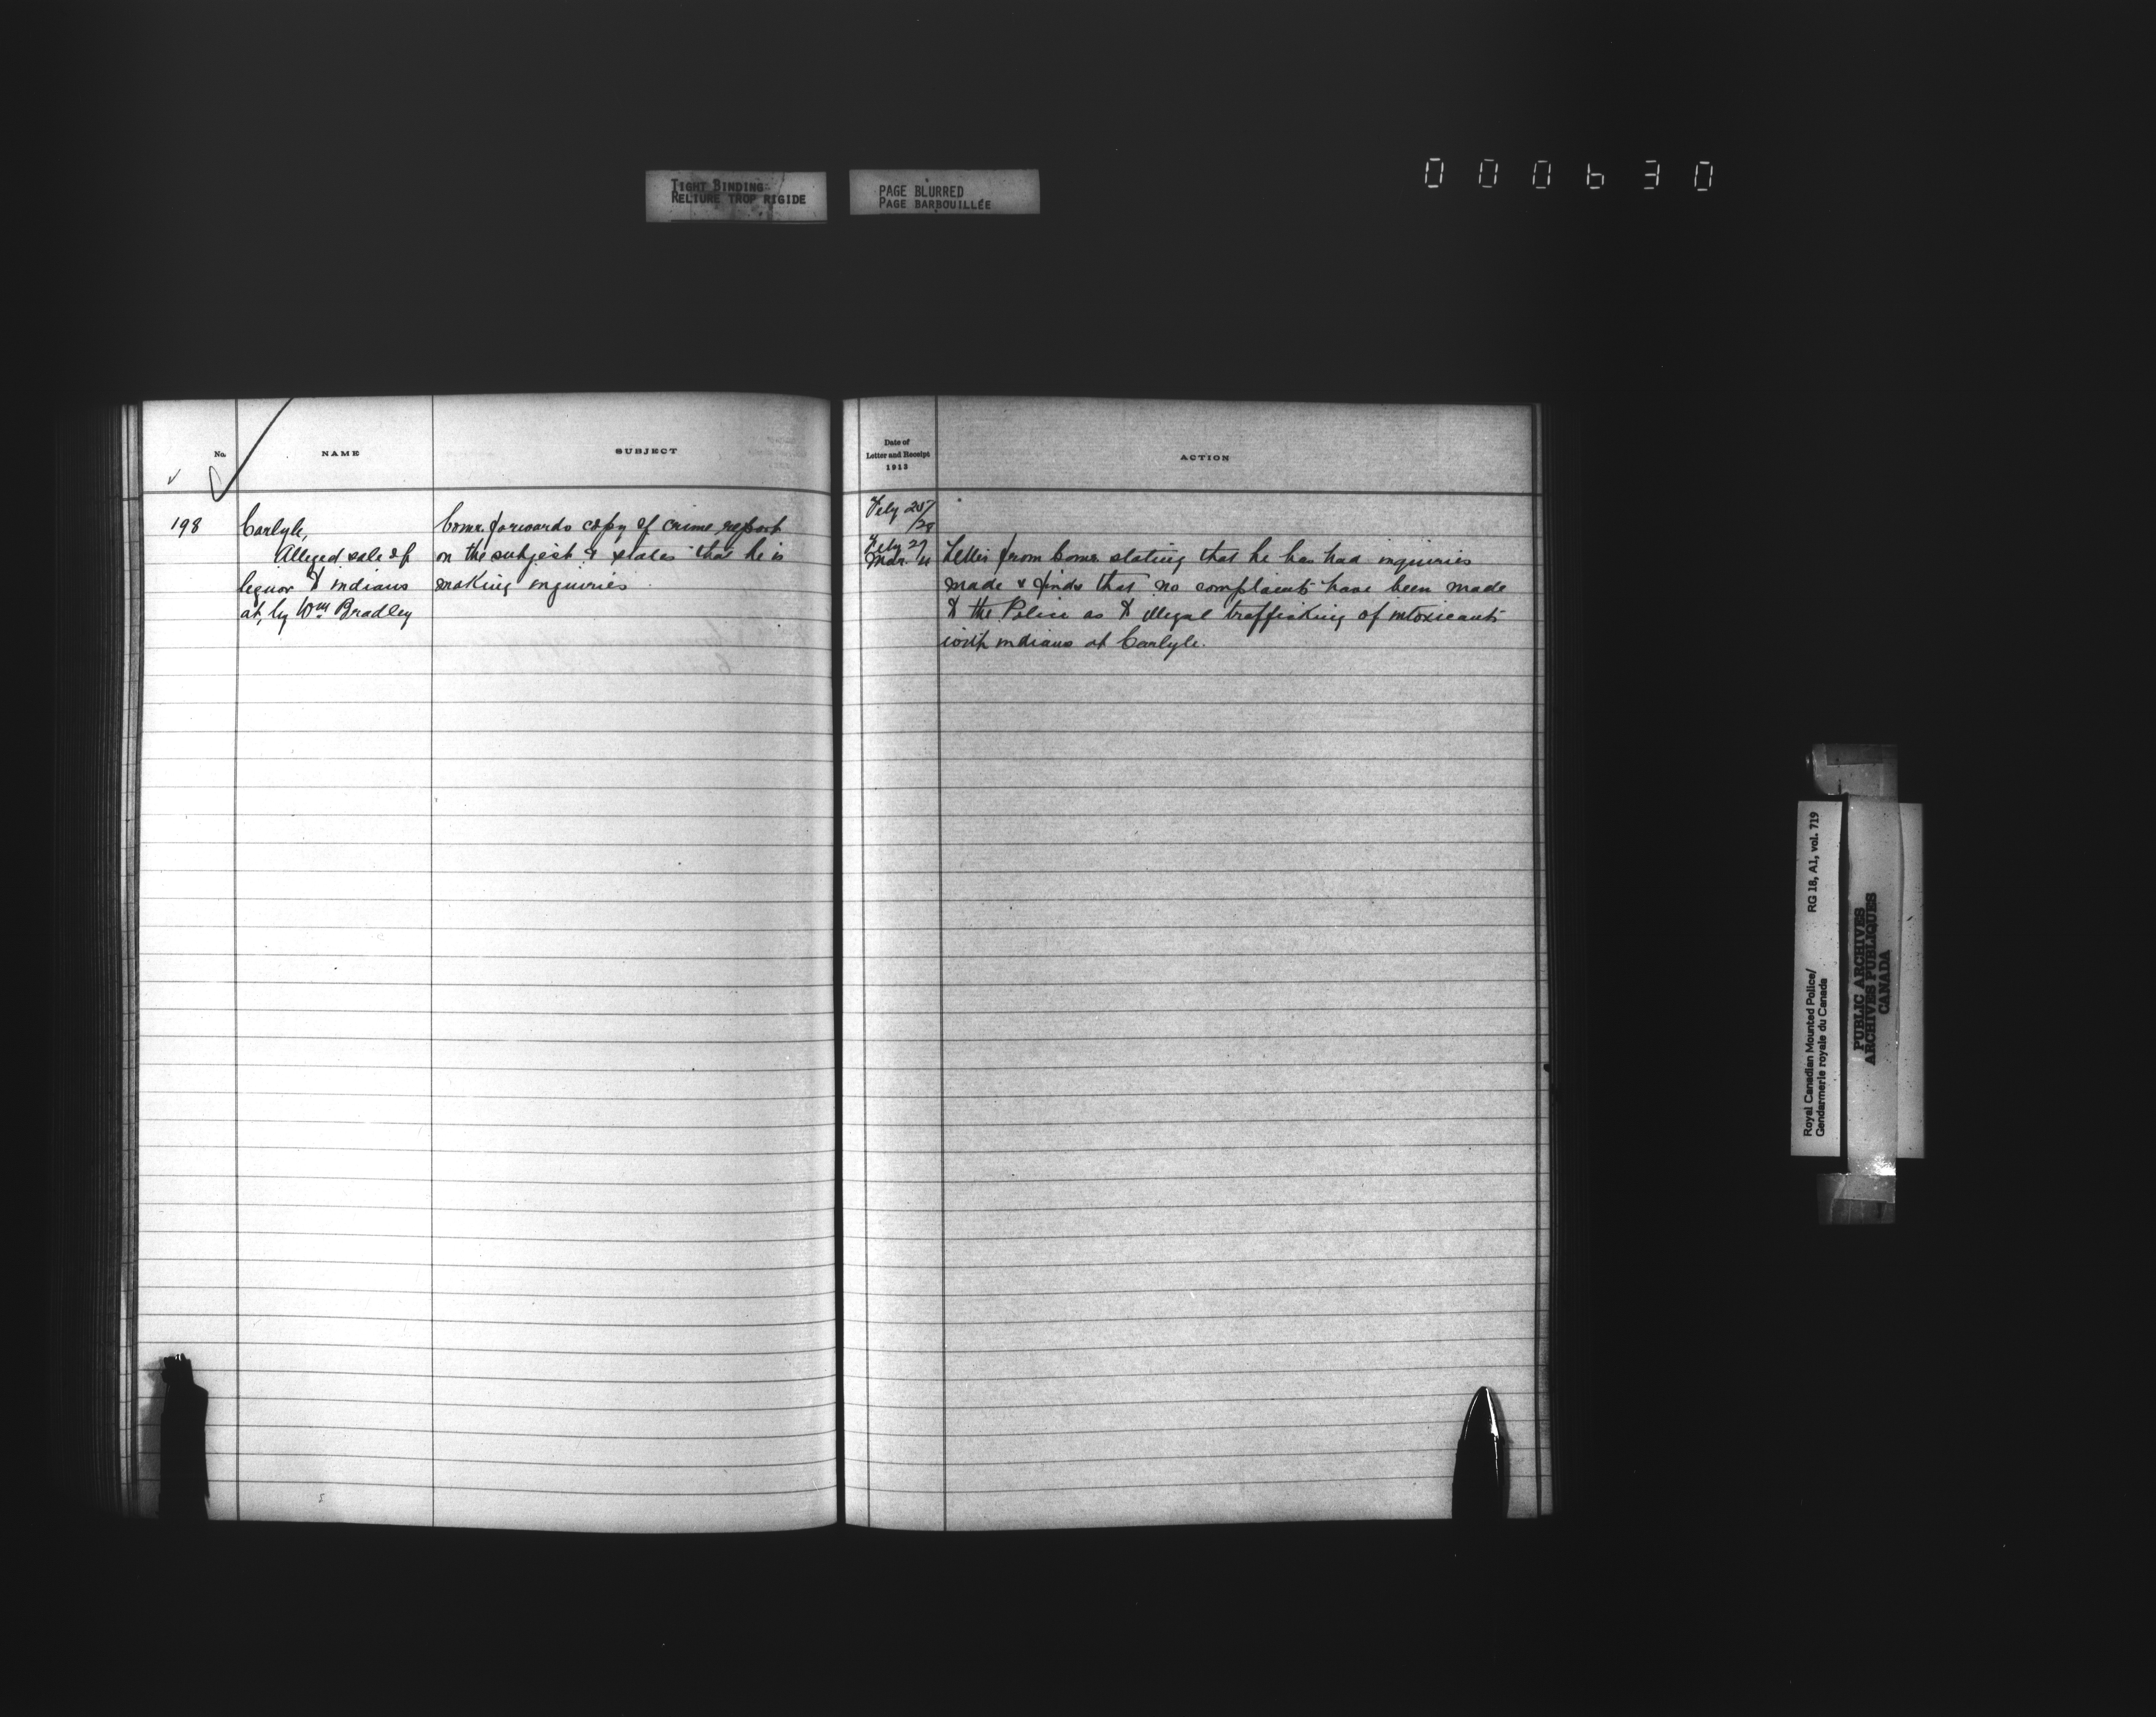 TIGHT BINDING
RELIURE TROP RIGIDE
PAGE BLURRED
PAGE BARBOUILLÉE
000630
No.
NAME
SUBJECT
198
Carlyle,
Alleged sale of
liquor to indians
at, by Wm Bradley
Comr. forwards copy of crime report
on the subject & states that he is
making inquiries
Date of
Letter and Receipt
1913
ACTION
Feby 25/
/28
Feby 27
Mar. 4
Letter from Comr. stating that he has had inquiries
made & finds that no complaints have been made
to the Police as to illegal trafficking of intoxicants
with indians at Carlyle.
Royal Canadian Mounted Police/
Gendarmerie royale du Canada
RG 18, A1, vol. 719
PUBLIC ARCHIVES
ARCHIVES PUBLIQUES
CANADA